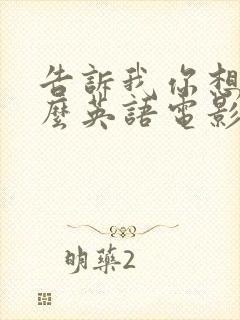 告訴我 你想
麼英語電影
明藥2